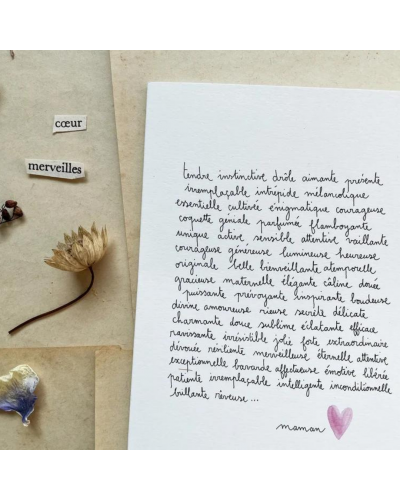 cœur
merveilles
tendre instinctive drôle aimante présente
irremplaçable intrépide mélancolique
essentielle cultivée énigmatique courageuse
coquette géniale parfumée flamboyante
unique active sensible attentive vaillante
courageuse généreuse lumineuse heureuse
originale belle bienveillante atemporelle
gracieuse maternelle élégante câline douée
puissante prévoyante inspirante boudeuse
divine amoureuse rieuse secrète délicate
charmante douce sublime éclatante efficace
ravissante irrésistible jolie forte extraordinaire
dévouée résiliente merveilleuse éternelle attentive
exceptionnelle bavarde affectueuse émotive libérée
patiente irremplaçable intelligente inconditionnelle
brillante rêveuse ...
maman